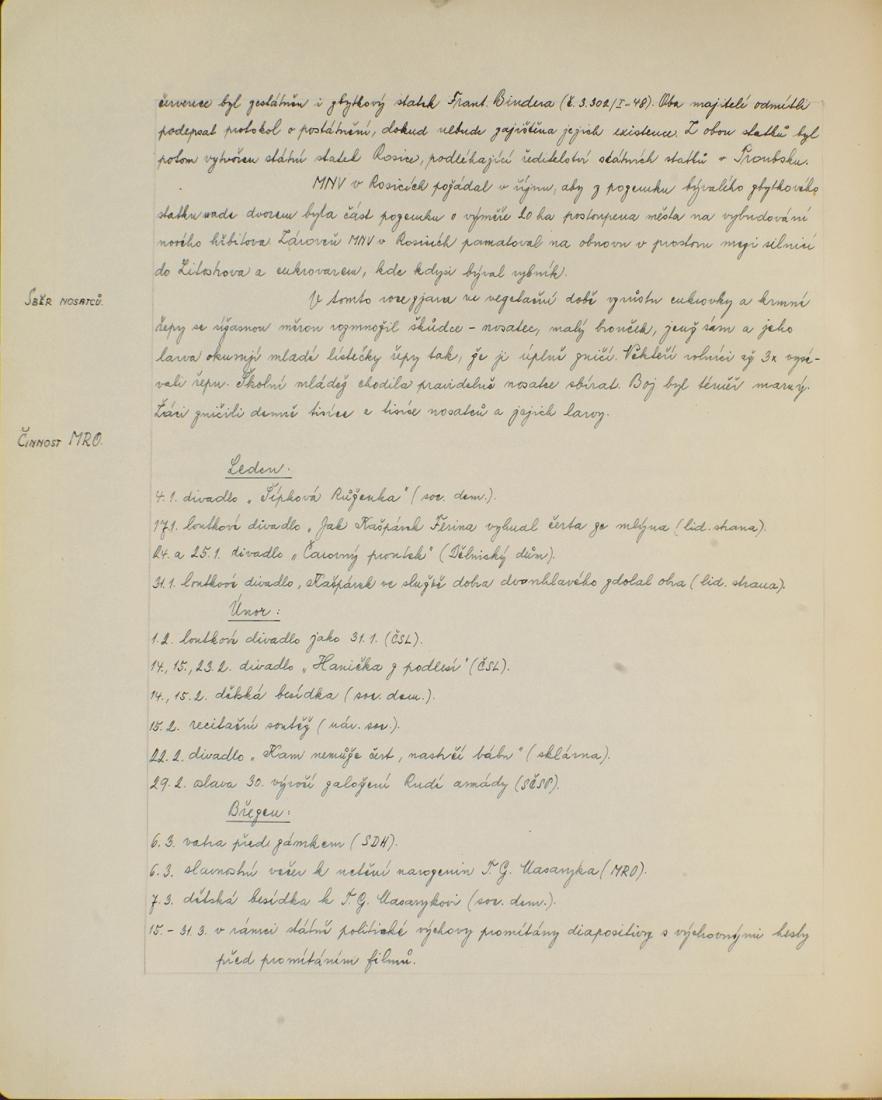 července byl zestátněn i zbytkový statek Frant. Bindera (č. 3.302/I-48). Oba majitelé odmítli
podepsat protokol o postátnění, dokud nebude zajištěna jejich existence. Z obou statků byl
potom vytvořen státní statek Rosice, podléhající ředitelství státních statků v Troubsku.
MNV v Rosicích požádal v říjnu, aby z pozemku bývalého zbytkového
statku nade dvorem byla část pozemku o výměře 20 ha postoupena města na vybudování
nového hřbitova. Zároveň MNV v Rosicích pamatoval na obnovu v prostoru mezi silnicí
do Litostrova a cukrovarem, kde kdysi býval rybník.
SBĚR NOSATCŮ.
V tomto roce zjara ve vegetační době vzrůstu cukrovky a krmné
řepy se úžasnou měrou rozmnožil škůdce - nosatec, malý brouček, jenž sám a jeho
larva okusují mladé lístečky řepy tak, že ji úplně zničí. Někteří rolníci až 3x vysé-
vali řepu. Školní mládež chodila pravidelně nosatce sbírat. Boj byl téměř marný.
Žáci zničili denně tisíce a tisíce nosatců a jejich larvy.
ČINNOST MRO.
Leden:
4.1. divadlo „Šípková Růženka" (soc. dem.).
17.1. loutkové divadlo „Jak Kašpárek Ferina vyhnal čerta ze mlýna (lid. strana).
24. a 25.1. divadlo „Čarovný proutek" (Dělnický dům).
31.1. loutkové divadlo, „Kašpárek ve službě dobra dvouhlavého zdolal obra (lid. strana).
Únor:
1.2. loutkové divadlo jako 31.1. (ČSL).
14., 15., 23.2. divadlo „Hanička z podlesí" (ČSL).
14., 15.2. dětská besídka (soc. dem.).
15.2. recitační soutěž (nár. soc.).
22.2. divadlo „Kam nemůže čert, nastrčí bábu" (sklárna).
29.2. oslava 30. výročí založení Rudé armády (SČSP).
Březen:
6.3. vatra před zámkem (SDH).
6.3. slavnostní večer k uctění narozenin T. G. Masaryka (MRO).
7.3. dětská besídka k T. G. Masarykovi (soc. dem.).
15.- 31.3. v rámci státně politické výchovy promítány diapositivy s výchovnými hesly
před promítáním filmů.